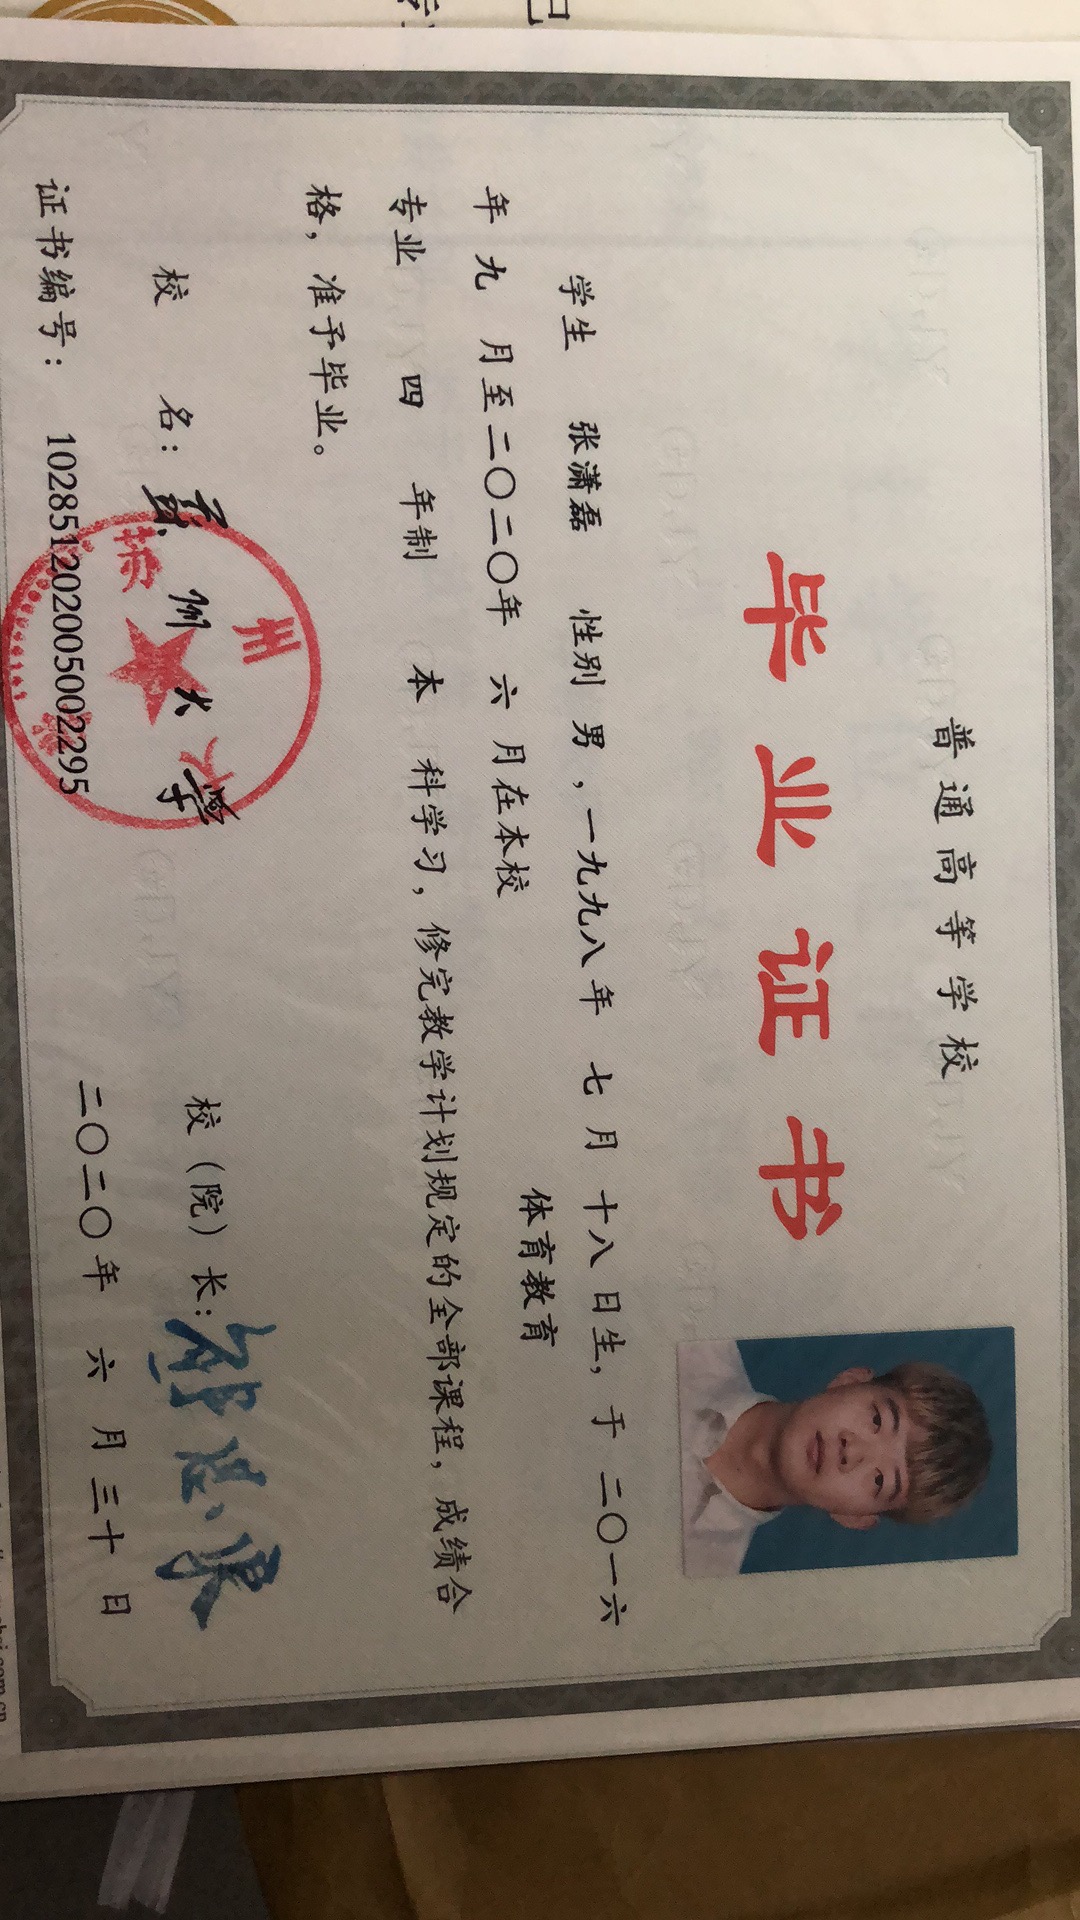 普通高等学校
毕业证书
学生 张潇磊 性别 男，一九九八年 七 月 十八 日生，于 二〇一六
年 九 月至二〇二〇年 六 月在本校 体育教育
专业 四 年制 本 科学习，修完教学计划规定的全部课程，成绩合
格，准予毕业。
校 名：苏州大学 校（院）长：
证书编号：102851202005002295 二〇二〇年 六 月 三十 日